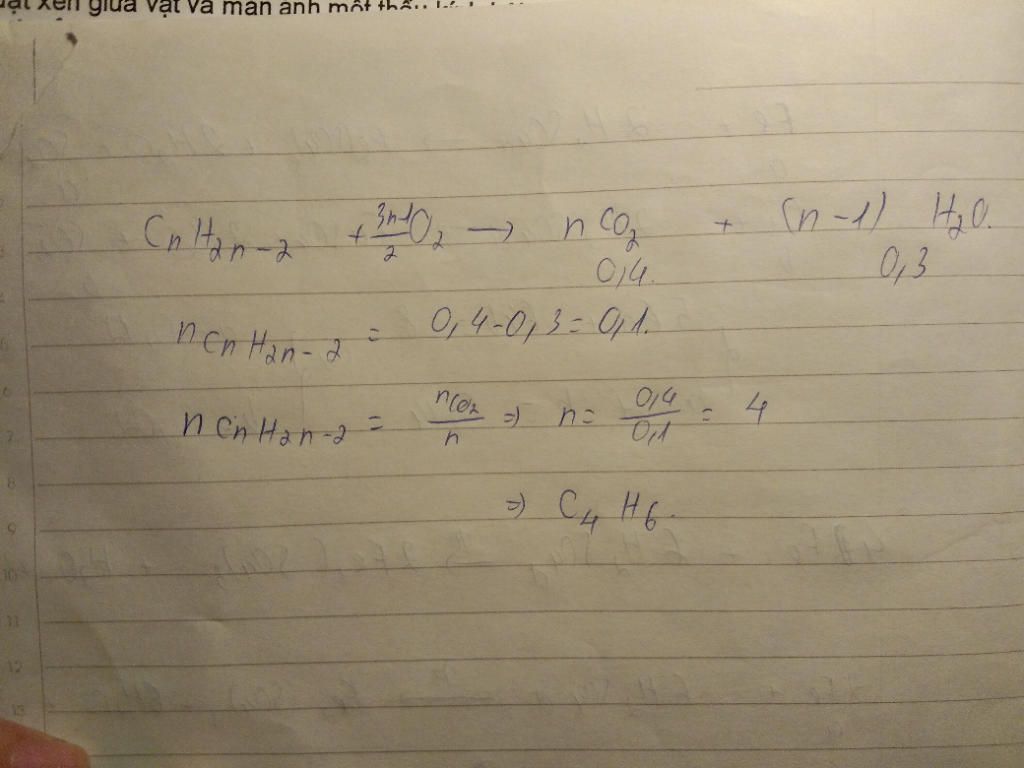 xen giữa vật và màn ảnh một thấu
CnH2n-2 + 3n-1/2 O2 → nCO2 + (n-1) H2O.
0,4. 0,3
nCnH2n-2 = 0,4-0,3=0,1.
nCnH2n-2 = nCO2/n ⇒ n= 0,4/0,1 = 4
⇒ C4H6.